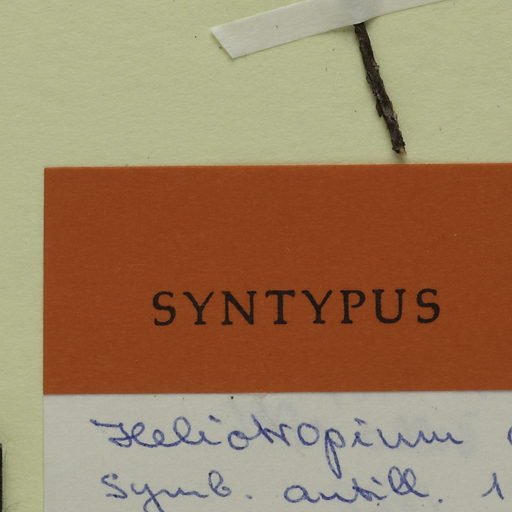 SYNTYPUS
Heliotropium
Symb. antill. 1